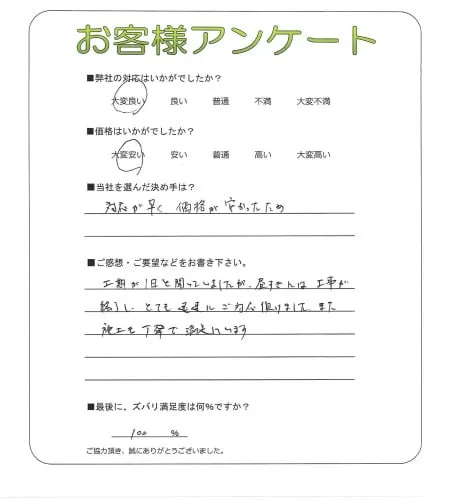 お客様アンケート
■弊社の対応はいかがでしたか？
大変良い 良い 普通 不満 大変不満
■価格はいかがでしたか？
大変安い 安い 普通 高い 大変高い
■当社を選んだ決め手は？
対応が早く 価格が安かったため
■ご感想・ご要望などをお書き下さい。
工期が1日と聞いていましたが、昼すぎには工事が
終了し、とても迅速にご対応頂けました また
施工も丁寧で満足しています
■最後に、ズバリ満足度は何%ですか？
100 %
ご協力頂き、誠にありがとうございました。